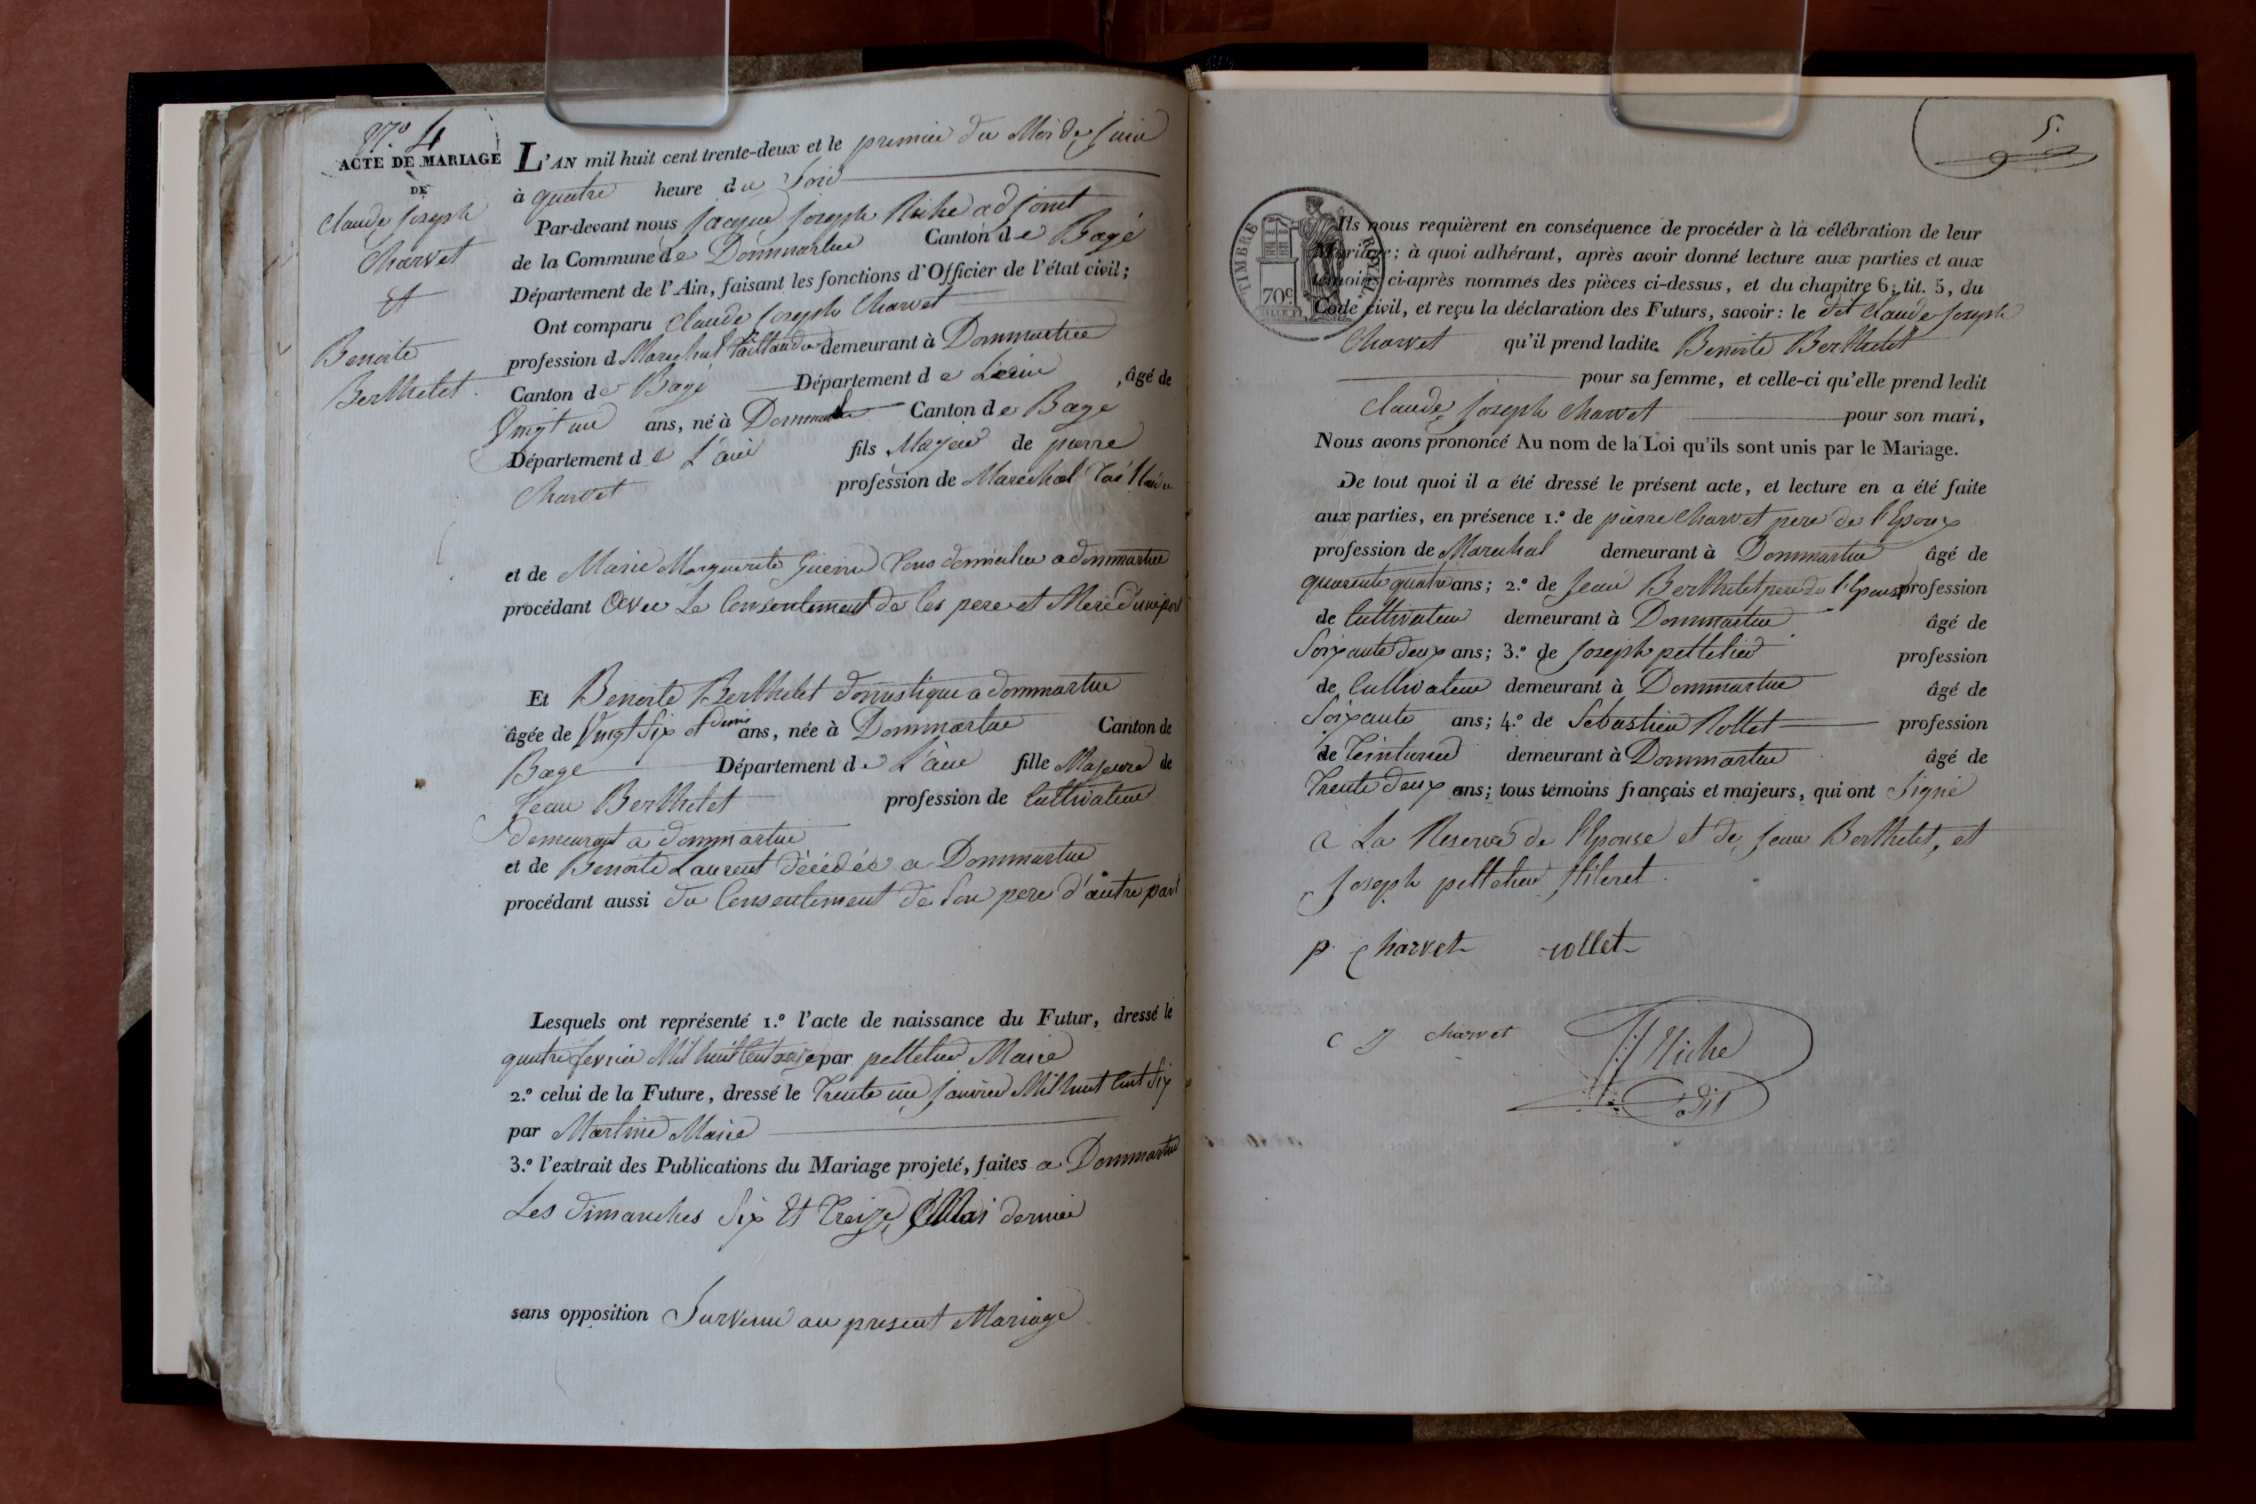 N.º 4
ACTE DE MARIAGE
DE
Claude Joseph
Charvet
Et
Benoite
Berthelet.
L'AN mil huit cent trente-deux et le premier du Mois de Juin
à quatre heure du Soir
Par-devant nous Jacque Joseph Riche adjoint
de la Commune de Dommartin Canton de Bagé
Département de l'Ain, faisant les fonctions d'Officier de l'état civil;
Ont comparu Claude Joseph Charvet
profession d Marechal Taillandier demeurant à Dommartin
Canton de Bagé Département de L'ain, âgé de
Vingt un ans, né à Dommartin Canton de Bagé
Département de L'ain fils Majeur de pierre
Charvet profession de Marechal Taillandier
et de Marie Marguerite Guerin Tous domicilié a dommartin
procédant avec Le Consentement de Ces pere et Mere d'une part
Et Benoite Berthelet domestique a dommartin
âgée de Vingt Six et demis ans, née à Dommartin Canton de
Bage Département de L'ain fille Majeure de
Jean Berthelet profession de Cultivateur
demeurant a dommartin
et de Benoite Laurent décédée a Dommartin
procédant aussi du Consentement de Son pere d'autre part
Lesquels ont représenté 1.º l'acte de naissance du Futur, dressé le
quatre fevrier Mil huit Cent onze par pelletier Maire
2.º celui de la Future, dressé le Trente un Janvier Mil huit Cent Six
par Martine Maire
3.º l'extrait des Publications du Mariage projeté, faites a Dommartin
Les dimanches Six Et Treize Mai dernier
sans opposition Survenu au present Mariage
5.
TIMBRE ROYAL
70c
Ils nous requièrent en conséquence de procéder à la célébration de leur
Mariage; à quoi adhérant, après avoir donné lecture aux parties et aux
témoins ci-après nommés des pièces ci-dessus, et du chapitre 6, tit. 5, du
Code civil, et reçu la déclaration des Futurs, savoir: le dit Claude Joseph
Charvet qu'il prend ladite Benoite Berthelet
pour sa femme, et celle-ci qu'elle prend ledit
Claude Joseph Charvet pour son mari,
Nous avons prononcé Au nom de la Loi qu'ils sont unis par le Mariage.
De tout quoi il a été dressé le présent acte, et lecture en a été faite
aux parties, en présence 1.º de pierre Charvet pere de l'Epoux
profession de Marechal demeurant à Dommartin âgé de
quarante quatre ans; 2.º de Jean Berthelet pere de l'Epouse profession
de Cultivateur demeurant à Dommartin âgé de
Soixante deux ans; 3.º de Joseph pelletier profession
de Cultivateur demeurant à Dommartin âgé de
Soixante ans; 4.º de Sebastien Rollet profession
de Teinturier demeurant à Dommartin âgé de
Trente deux ans; tous témoins français et majeurs, qui ont Signé
a La Reserve de l'Epouse et de Jean Berthelet, et
Joseph pelletier Illiteret.
p. Charvet rollet
C J Charvet
JJ Riche
adjt